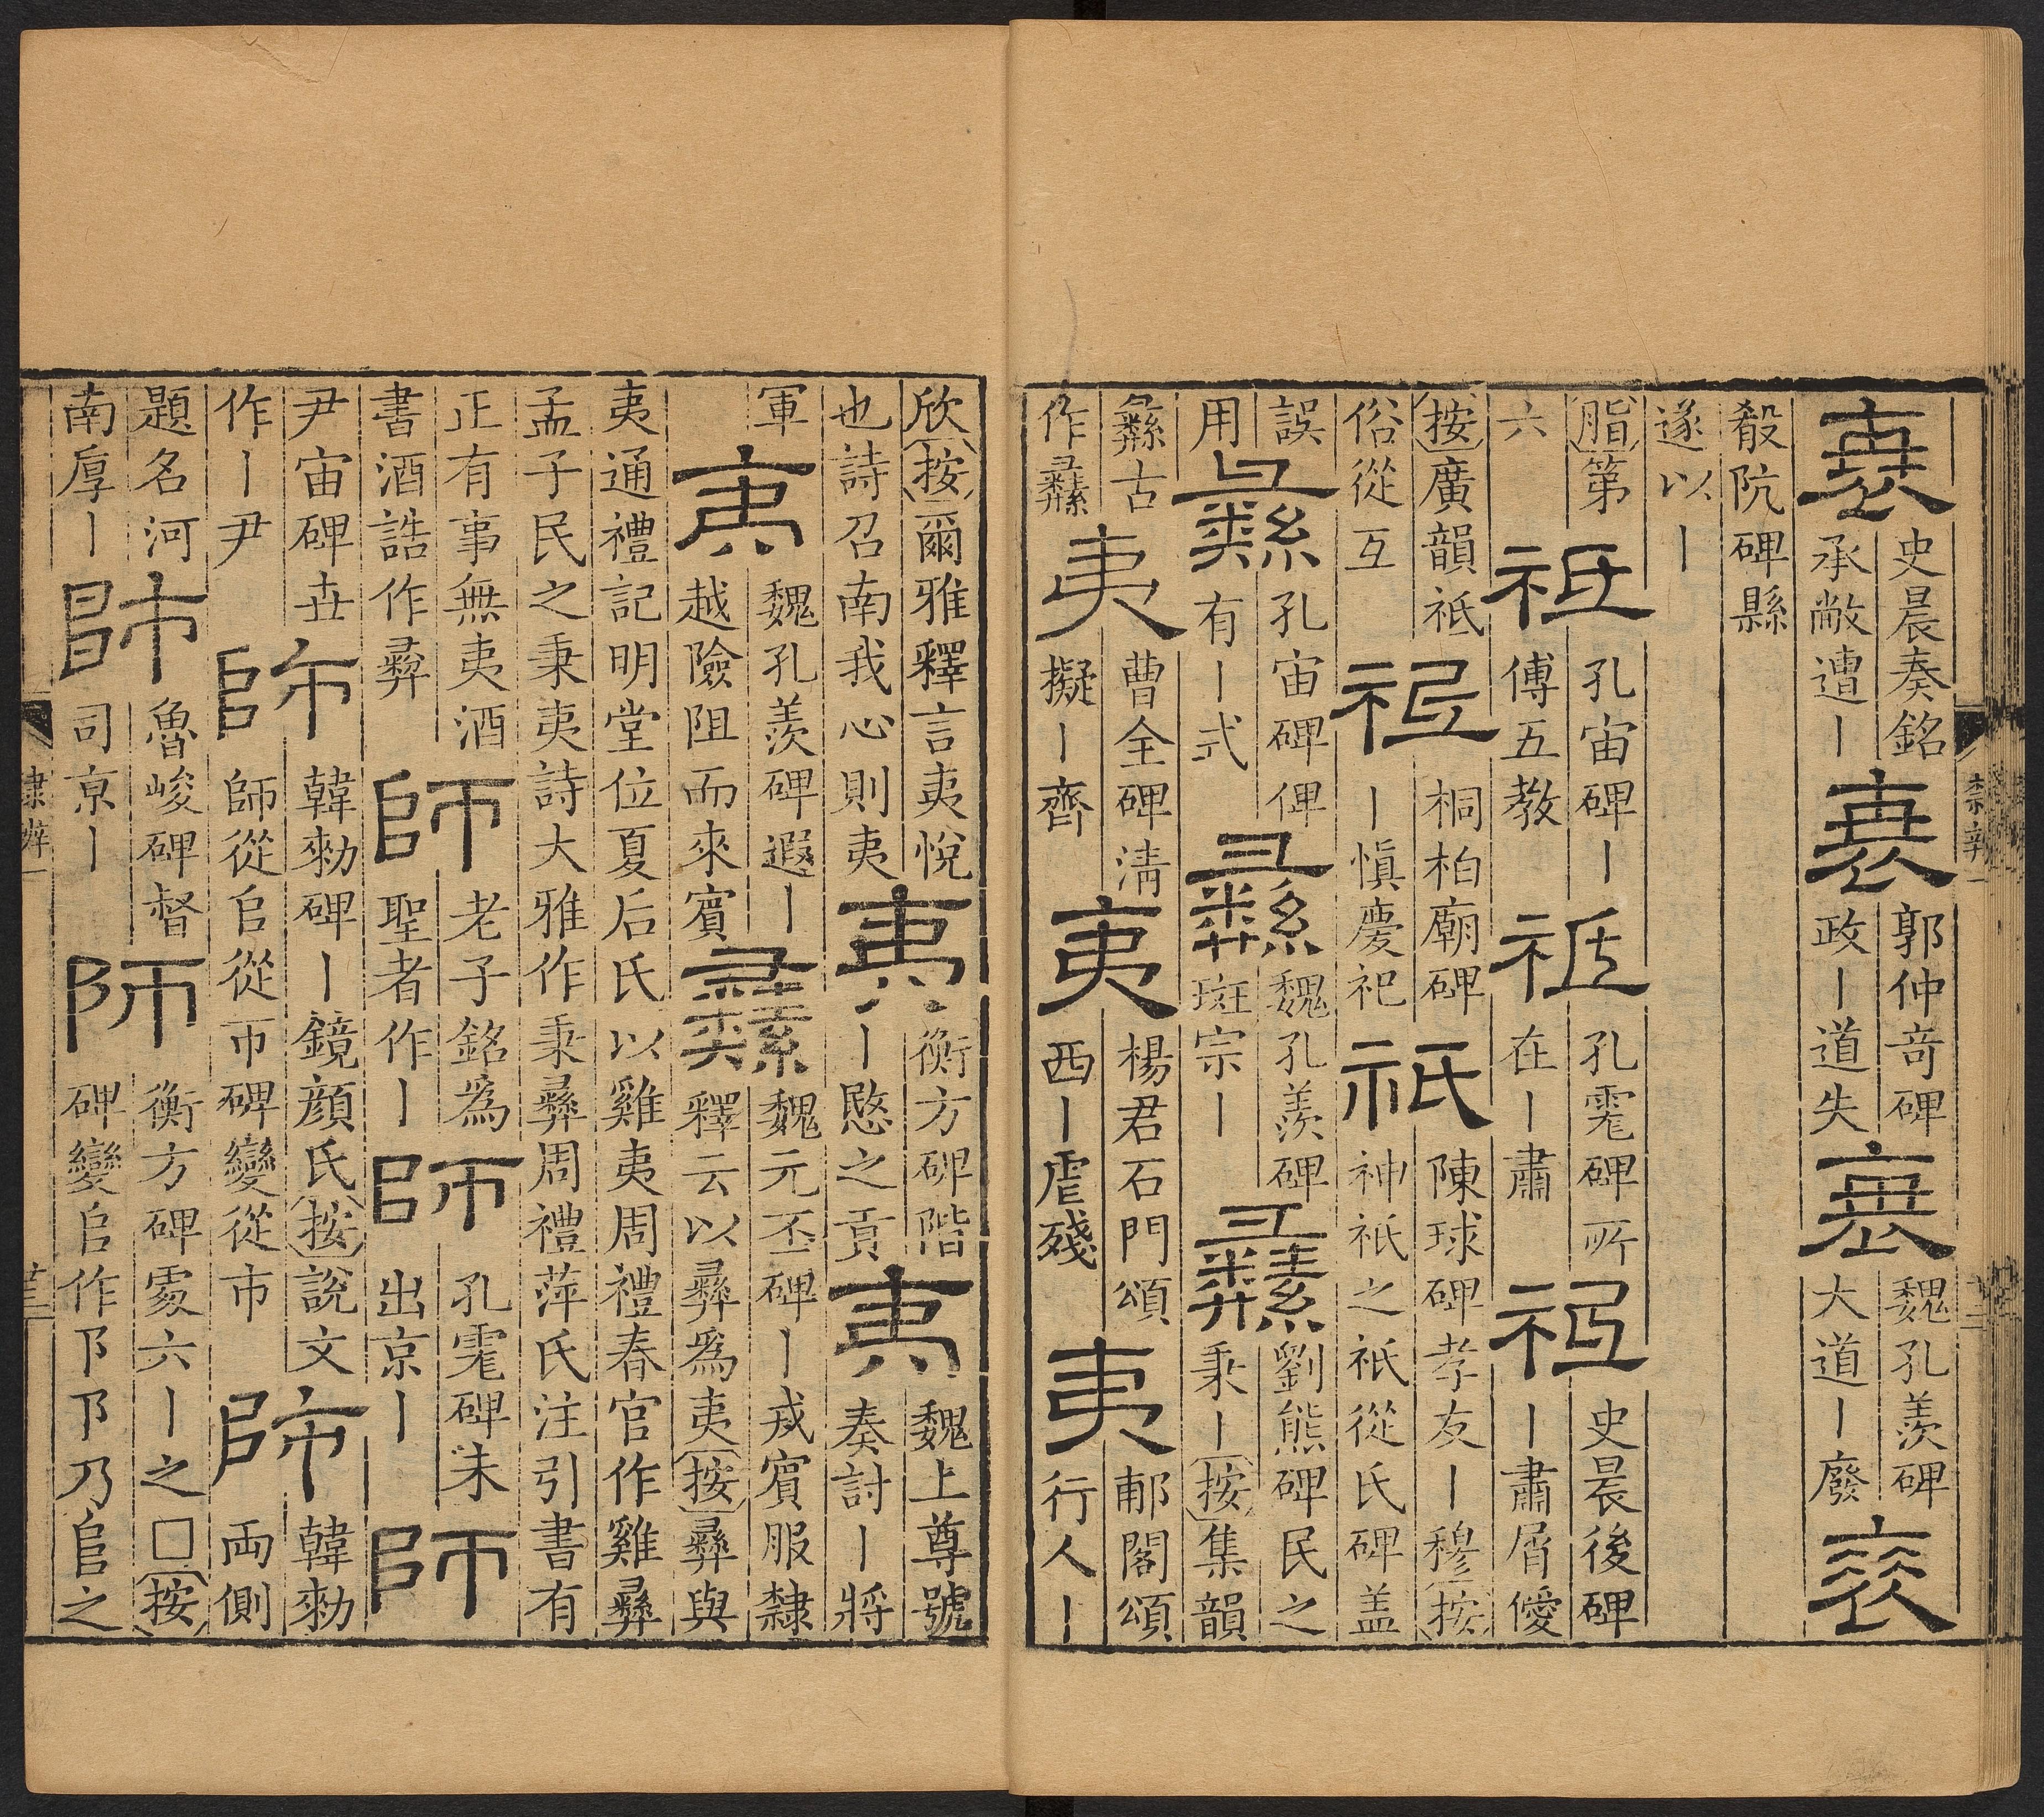 衰史晨奏銘承敝遭丨衰郭仲奇碑政丨道失衰魏孔羨碑大道丨廢衰
殽阬碑縣遂以丨
脂第六祗孔宙碑丨傅五教祗孔碑所在丨肅祗史晨後碑丨肅屑僾
按廣韻祗俗從互祗桐柏廟碑丨慎慶祀祇陳球碑孝友丨穆按神祇之祇從氏碑盖
誤用彝孔宙碑俾有丨式彝魏孔羨碑斑宗丨彝劉熊碑民之秉丨按集韻
彝古作彞夷曹全碑清擬丨齊夷楊君石門頌西丨虐殘夷郙閣頌行人丨
欣按爾雅釋言夷悅也詩召南我心則夷夷衡方碑階丨愍之貢夷魏上尊號奏討丨將
軍夷魏孔羨碑遐丨越險阻而來賓彝魏元丕碑丨戎賓服隸釋云以彝爲夷按彝與
夷通禮記明堂位夏后氏以雞夷周禮春官作雞彝孟子民之秉夷詩大雅作秉彝周禮萍氏注引書有
正有事無夷酒書酒誥作彝師老子銘爲聖者作丨師孔碑朱出京丨師
尹宙碑丗作丨尹師韓勑碑丨鏡顏氏按說文師從𠂤從帀碑變從市師韓勑兩側
題名河南厚丨師魯峻碑督司京丨師衡方碑䖏六丨之□按碑變𠂤作阝阝乃𨸏之
隸辨一